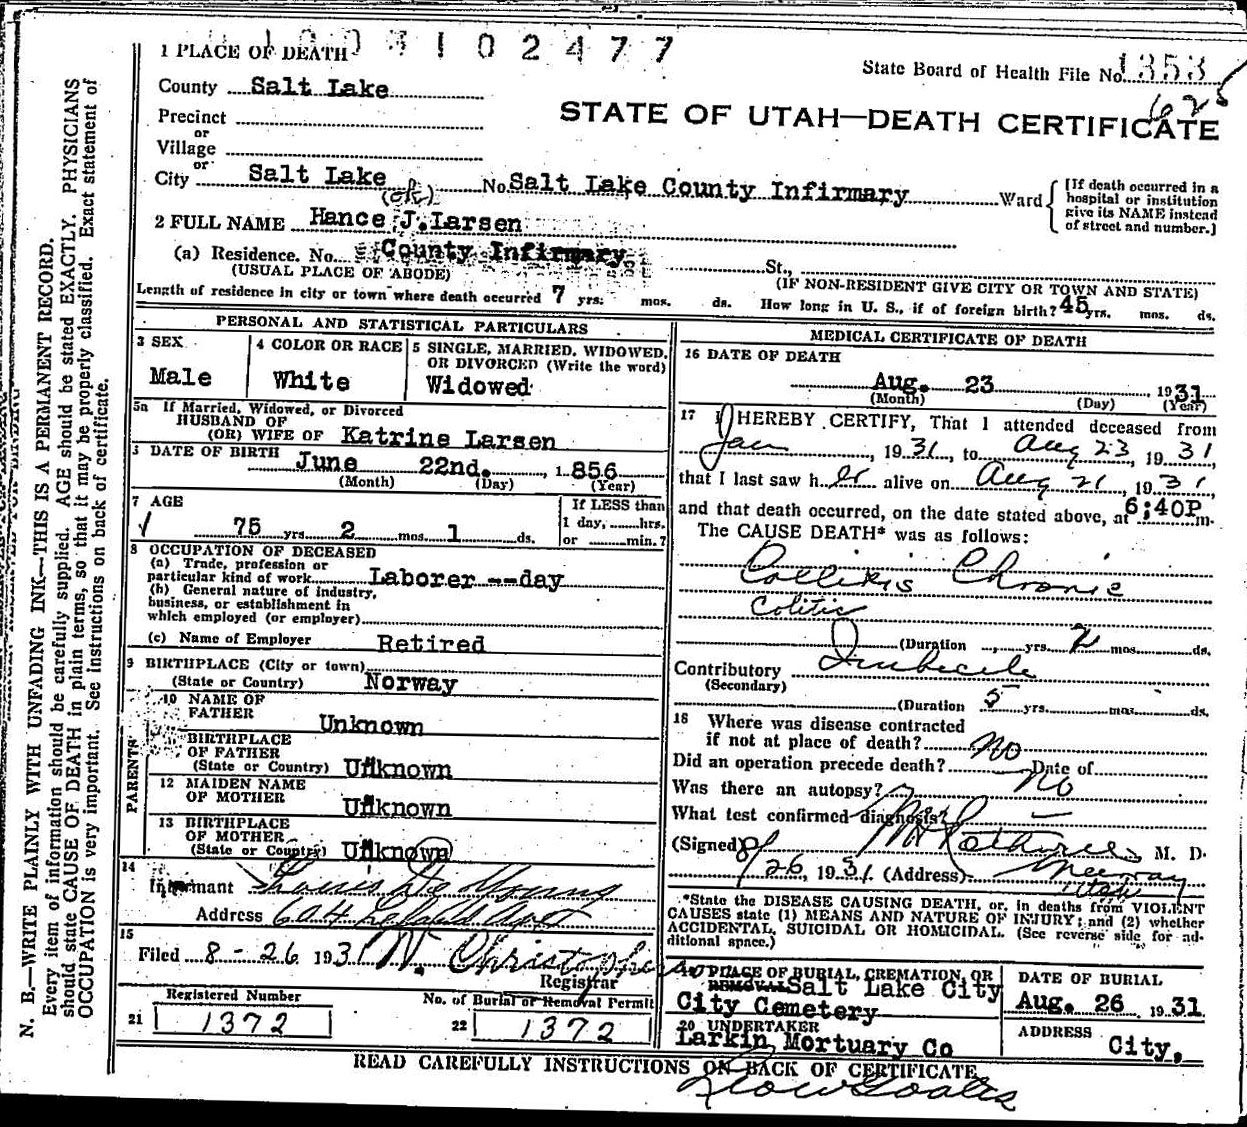 1 PLACE OF DEATH
3 1 0 2 4 7 7
State Board of Health File No. 1353
625
County Salt Lake
STATE OF UTAH—DEATH CERTIFICATE
Precinct
or
Village
or
City Salt Lake No. Salt Lake County Infirmary Ward
[If death occurred in a
hospital or institution
give its NAME instead
of street and number.]
(ok)
2 FULL NAME Hance J. Larsen
(a) Residence. No. County Infirmary St.,
(USUAL PLACE OF ABODE) (IF NON-RESIDENT GIVE CITY OR TOWN AND STATE)
Length of residence in city or town where death occurred 7 yrs. mos. ds. How long in U. S., if of foreign birth? 45 yrs. mos. ds.
N. B.—WRITE PLAINLY WITH UNFADING INK—THIS IS A PERMANENT RECORD.
Every item of information should be carefully supplied. AGE should be stated EXACTLY. PHYSICIANS
should state CAUSE OF DEATH in plain terms, so that it may be properly classified. Exact statement of
OCCUPATION is very important. See instructions on back of certificate.
PERSONAL AND STATISTICAL PARTICULARS
3 SEX
Male
4 COLOR OR RACE
White
5 SINGLE, MARRIED, WIDOWED,
OR DIVORCED (Write the word)
Widowed
5a If Married, Widowed, or Divorced
HUSBAND OF
(OR) WIFE OF Katrine Larsen
DATE OF BIRTH
June 22nd. 1856
(Month) (Day) (Year)
7 AGE
75 yrs. 2 mos. 1 ds.
If LESS than
1 day, hrs.
or min.?
8 OCCUPATION OF DECEASED
(a) Trade, profession or
particular kind of work Laborer --day
(b) General nature of industry,
business, or establishment in
which employed (or employer)
(c) Name of Employer Retired
9 BIRTHPLACE (City or town)
(State or Country) Norway
PARENTS
10 NAME OF
FATHER Unknown
BIRTHPLACE
OF FATHER
(State or Country) Unknown
12 MAIDEN NAME
OF MOTHER Unknown
13 BIRTHPLACE
OF MOTHER
(State or Country) Unknown
14
Informant Louis De Young
Address 604
15
Filed 8-26 1931 W. Christopherson
Registrar
Registered Number
21 1372
No. of Burial or Removal Permit
22 1372
MEDICAL CERTIFICATE OF DEATH
16 DATE OF DEATH
Aug. 23 1931
(Month) (Day) (Year)
17 I HEREBY CERTIFY, That I attended deceased from
Jan, 1931, to Aug 23, 1931,
that I last saw h alive on Aug 21, 1931,
and that death occurred, on the date stated above, at 6;40P m.
The CAUSE DEATH* was as follows:
Collitis Chronic
Colitis
(Duration yrs. 2 mos. ds.
Contributory Imbecile
(Secondary)
(Duration 5 yrs. mos. ds.
18 Where was disease contracted
if not at place of death?
Did an operation precede death? No Date of
Was there an autopsy? No
What test confirmed diagnosis?
(Signed) M. D.
8/26, 1931. (Address) Murray
Utah
*State the DISEASE CAUSING DEATH, or, in deaths from VIOLENT
CAUSES state (1) MEANS AND NATURE OF INJURY; and (2) whether
ACCIDENTAL, SUICIDAL OR HOMICIDAL. (See reverse side for ad-
ditional space.)
PLACE OF BURIAL, CREMATION, OR
REMOVAL Salt Lake City
City Cemetery
DATE OF BURIAL
Aug. 26, 1931.
20 UNDERTAKER
Larkin Mortuary Co
ADDRESS
City.
READ CAREFULLY INSTRUCTIONS ON BACK OF CERTIFICATE